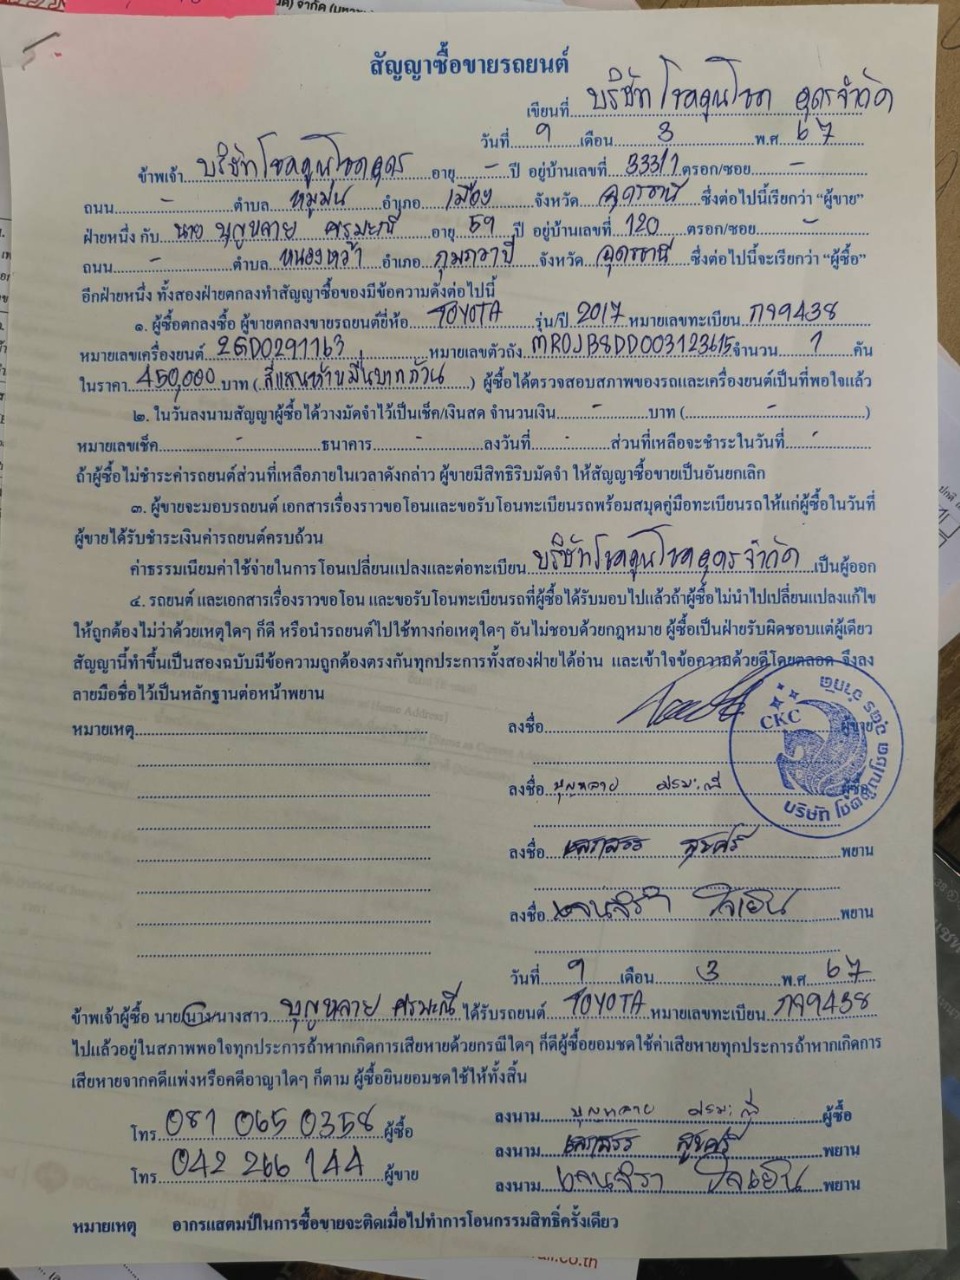 สัญญาซื้อขายรถยนต์
เขียนที่ บริษัท โชคคูนโชค อุดรจำกัด
วันที่ 9 เดือน 3 พ.ศ 67
ข้าพเจ้า บริษัท โชคคูนโชคอุดร อายุ - ปี อยู่บ้านเลขที่ 333/1 ตรอก/ซอย -
ถนน - ตำบล หมูม่น อำเภอ เมือง จังหวัด อุดรธานี ซึ่งต่อไปนี้เรียกว่า “ผู้ขาย”
ฝ่ายหนึ่ง กับ นาย บุญหลาย ศรมะณี อายุ 59 ปี อยู่บ้านเลขที่ 120 ตรอก/ซอย -
ถนน - ตำบล หนองหว้า อำเภอ กุมภวาปี จังหวัด อุดรธานี ซึ่งต่อไปนี้จะเรียกว่า “ผู้ซื้อ”
อีกฝ่ายหนึ่ง ทั้งสองฝ่ายตกลงทำสัญญาซื้อของมีข้อความดังต่อไปนี้
๑. ผู้ซื้อตกลงซื้อ ผู้ขายตกลงขายรถยนต์ยี่ห้อ TOYOTA รุ่น/ปี 2017 หมายเลขทะเบียน
หมายเลขเครื่องยนต์ 2GD0291163 หมายเลขตัวถัง MR0JB8DD003123615 จำนวน 1 คัน
ในราคา 450,000 บาท (สี่แสนห้าหมื่นบาทถ้วน) ผู้ซื้อได้ตรวจสอบสภาพของรถและเครื่องยนต์เป็นที่พอใจแล้ว
๒. ในวันลงนามสัญญาผู้ซื้อได้วางมัดจำไว้เป็นเช็ค/เงินสด จำนวนเงิน - บาท ( - )
หมายเลขเช็ค - ธนาคาร - ลงวันที่ - ส่วนที่เหลือจะชำระในวันที่ -
ถ้าผู้ซื้อไม่ชำระค่ารถยนต์ส่วนที่เหลือภายในเวลาดังกล่าว ผู้ขายมีสิทธิริบมัดจำ ให้สัญญาซื้อขายเป็นอันยกเลิก
๓. ผู้ขายจะมอบรถยนต์ เอกสารเรื่องราวขอโอนและขอรับโอนทะเบียนรถพร้อมสมุดคู่มือทะเบียนรถให้แก่ผู้ซื้อในวันที่
ผู้ขายได้รับชำระเงินค่ารถยนต์ครบถ้วน
ค่าธรรมเนียมค่าใช้จ่ายในการโอนเปลี่ยนแปลงและต่อทะเบียน บริษัทโชคคูนโชคอุดรจำกัด เป็นผู้ออก
๔. รถยนต์ และเอกสารเรื่องราวขอโอน และขอรับโอนทะเบียนรถที่ผู้ซื้อได้รับมอบไปแล้วถ้าผู้ซื้อไม่นำไปเปลี่ยนแปลงแก้ไข
ให้ถูกต้องไม่ว่าด้วยเหตุใดๆ ก็ดี หรือนำรถยนต์ไปใช้ทางก่อเหตุใดๆ อันไม่ชอบด้วยกฎหมาย ผู้ซื้อเป็นฝ่ายรับผิดชอบแต่ผู้เดียว
สัญญานี้ทำขึ้นเป็นสองฉบับมีข้อความถูกต้องตรงกันทุกประการทั้งสองฝ่ายได้อ่าน และเข้าใจข้อความด้วยดีโดยตลอด จึงลง
ลายมือชื่อไว้เป็นหลักฐานต่อหน้าพยาน
หมายเหตุ ลงชื่อ ผู้ขาย
CKC
ลงชื่อ บุญหลาย ศรมะณี ผู้ซื้อ
ลงชื่อ พยาน
ลงชื่อ พยาน
วันที่ 9 เดือน 3 พ.ศ 67
ข้าพเจ้าผู้ซื้อ นาย/นาง/นางสาว บุญหลาย ศรมะณี ได้รับรถยนต์ TOYOTA หมายเลขทะเบียน
ไปแล้วอยู่ในสภาพพอใจทุกประการถ้าหากเกิดการเสียหายด้วยกรณีใดๆ ก็ดีผู้ซื้อยอมชดใช้ค่าเสียหายทุกประการถ้าหากเกิดการ
เสียหายจากคดีแพ่งหรือคดีอาญาใดๆ ก็ตาม ผู้ซื้อยินยอมชดใช้ให้ทั้งสิ้น
โทร 081 065 0358 ผู้ซื้อ ลงนาม บุญหลาย ศรมะณี ผู้ซื้อ
ลงนาม พยาน
โทร 042 266 144 ผู้ขาย ลงนาม พยาน
หมายเหตุ อากรแสตมป์ในการซื้อขายจะติดเมื่อไปทำการโอนกรรมสิทธิ์ครั้งเดียว